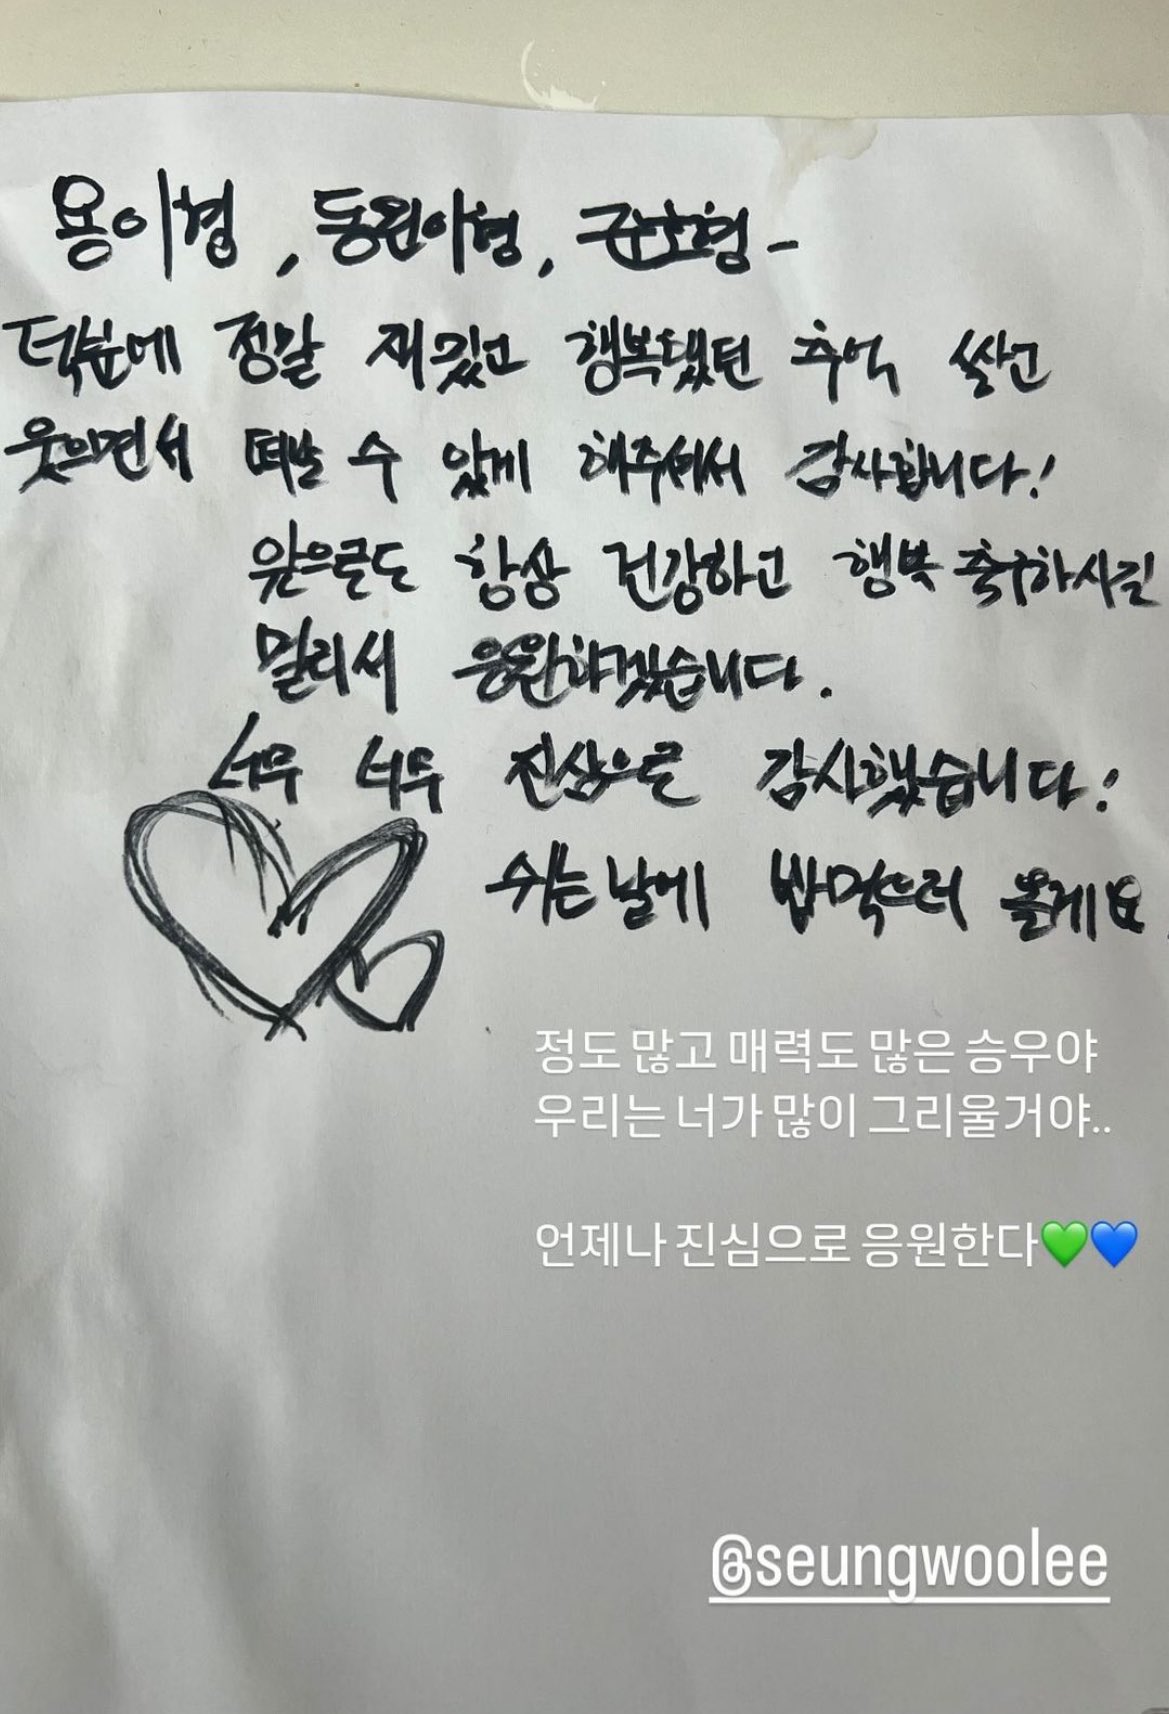 용이형, 동원이형, 군호형-
덕분에 정말 재밌고 행복했던 추억 쌓고
웃으면서 떠날 수 있게 해주셔서 감사합니다!
앞으로도 항상 건강하고 행복 축구하시길
멀리서 응원하겠습니다.
너무 너무 진심으로 감사했습니다!
쉬는날에 밥먹으러 올게요
정도 많고 매력도 많은 승우야
우리는 너가 많이 그리울거야..
언제나 진심으로 응원한다💚💙
@seungwoolee